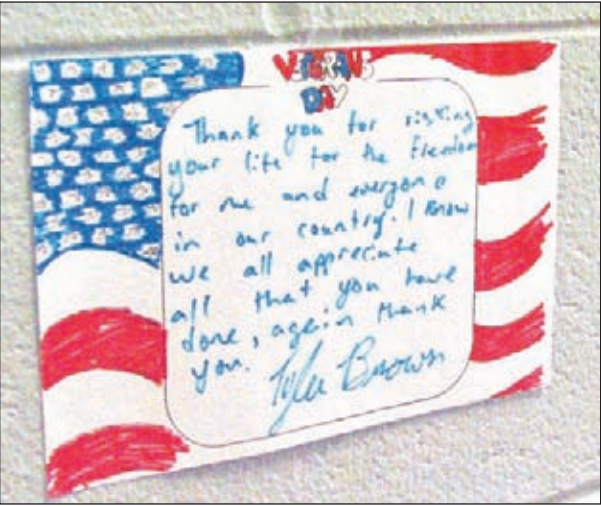 VETERANS
DAY
Thank you for risking
your life for the freedom
for me and everyone
in our country. I know
we all appreciate
all that you have
done, again thank
you. Tyler Brown